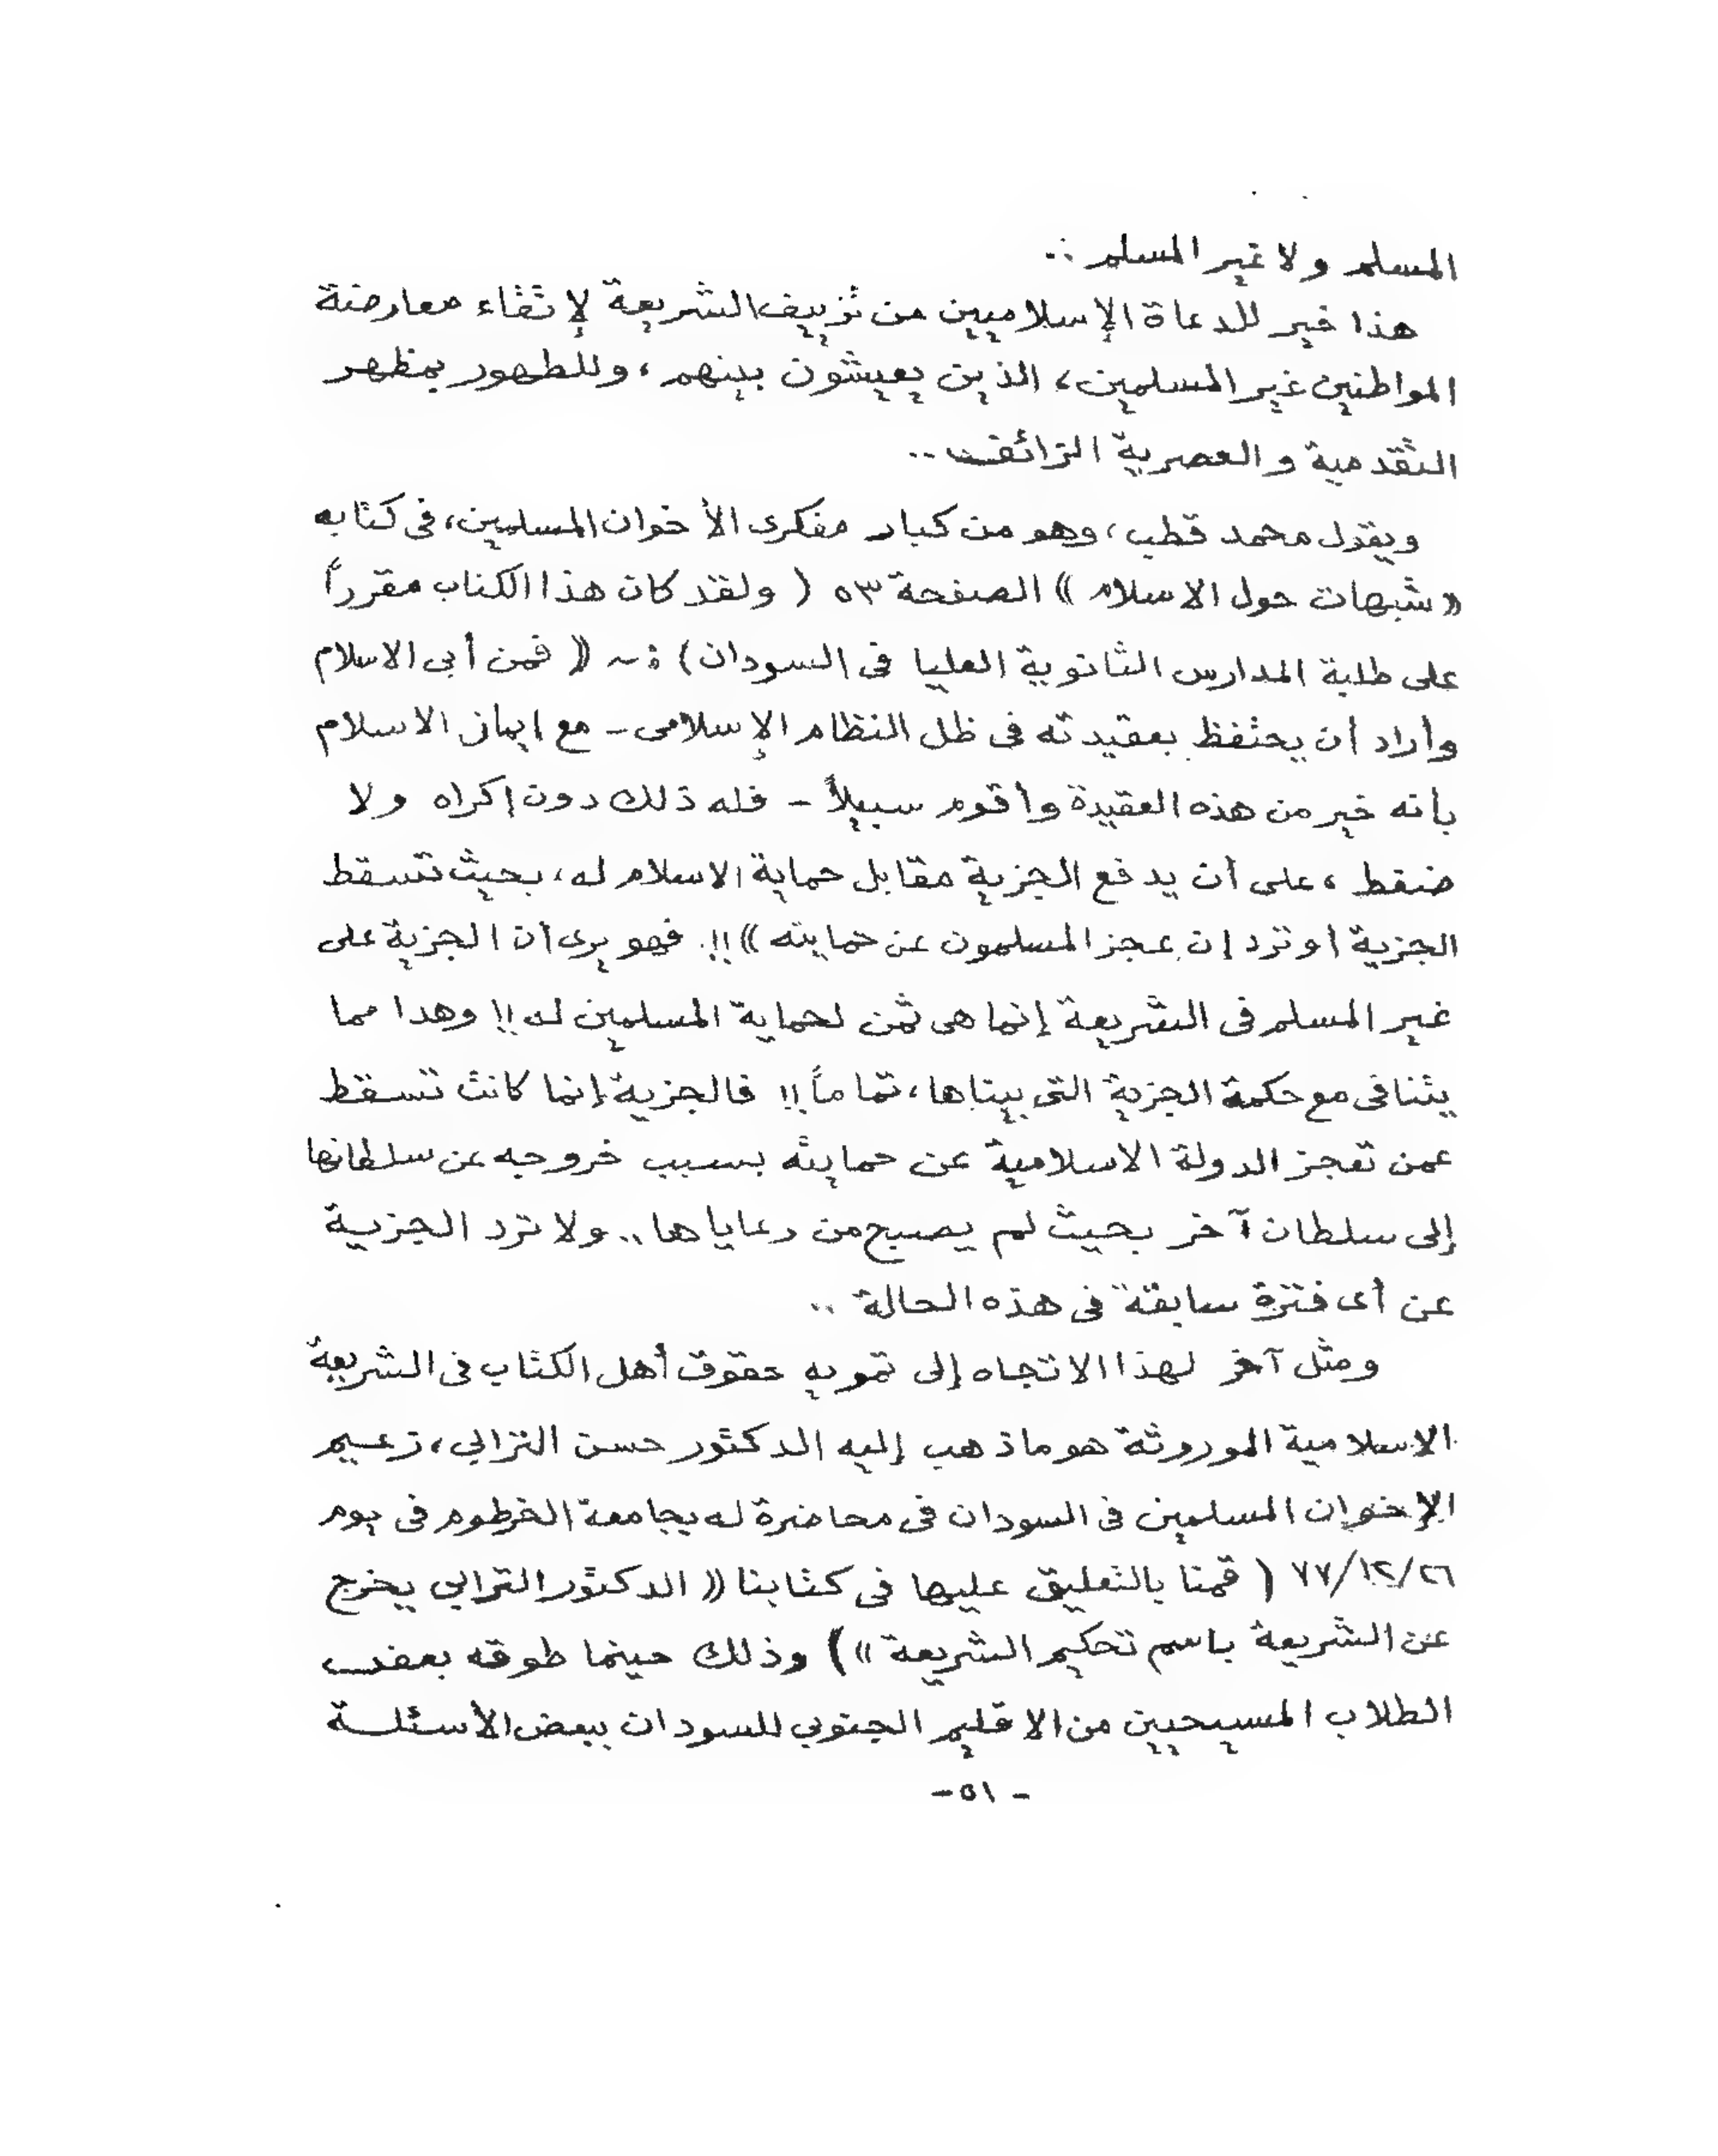 المسلم ولا غير المسلم ..
هذا خير للدعاة الإسلاميين من تزييف الشريعة لإتقاء معارضة
المواطنين غير المسلمين، الذين يعيشون بينهم، وللظهور بمظهر
التقدمية والعصرية الزائف ..
ويقول محمد قطب، وهو من كبار مفكرى الأخوان المسلمين، فى كتابه
«شبهات حول الاسلام» الصفحة ٥٣ (ولقد كان هذا الكتاب مقرراً
على طلبة المدارس الثانوية العليا فى السودان) :ـ «فمن أبى الاسلام
وأراد أن يحتفظ بعقيدته فى ظل النظام الإسلامى - مع إيمان الاسلام
بأنه خير من هذه العقيدة وأقوم سبيلاً - فله ذلك دون إكراه ولا
ضغط، على أن يدفع الجزية مقابل حماية الاسلام له، بحيث تسقط
الجزية أو ترد إن عجز المسلمون عن حمايته»!! فهو يرى أن الجزية على
غير المسلم فى الشريعة إنما هى ثمن لحماية المسلمين له!! وهدا مما
يتنافى مع حكمة الجزية التى بيناها، تماماً!! فالجزية إنما كانت تسقط
عمن تعجز الدولة الاسلامية عن حمايته بسبب خروجه عن سلطانها
إلى سلطان آخر بحيث لم يصبح من رعاياها .. ولا ترد الجزية
عن أى فترة سابقة فى هذه الحالة ..
ومثل آخر لهذا الاتجاه إلى تمويه حقوق أهل الكتاب فى الشريعة
الاسلامية الموروثة هو ما ذهب إليه الدكتور حسن الترابي، زعيم
الإخوان المسلمين فى السودان فى محاضرة له بجامعة الخرطوم فى يوم
٢٦/١٢/٧٧ (قمنا بالتعليق عليها فى كتابنا «الدكتور الترابي يخرج
عن الشريعة باسم تحكيم الشريعة») وذلك حينما طوقه بعض
الطلاب المسيحيين من الاقليم الجنوبي للسودان ببعض الأسئلة
- ٥١ -